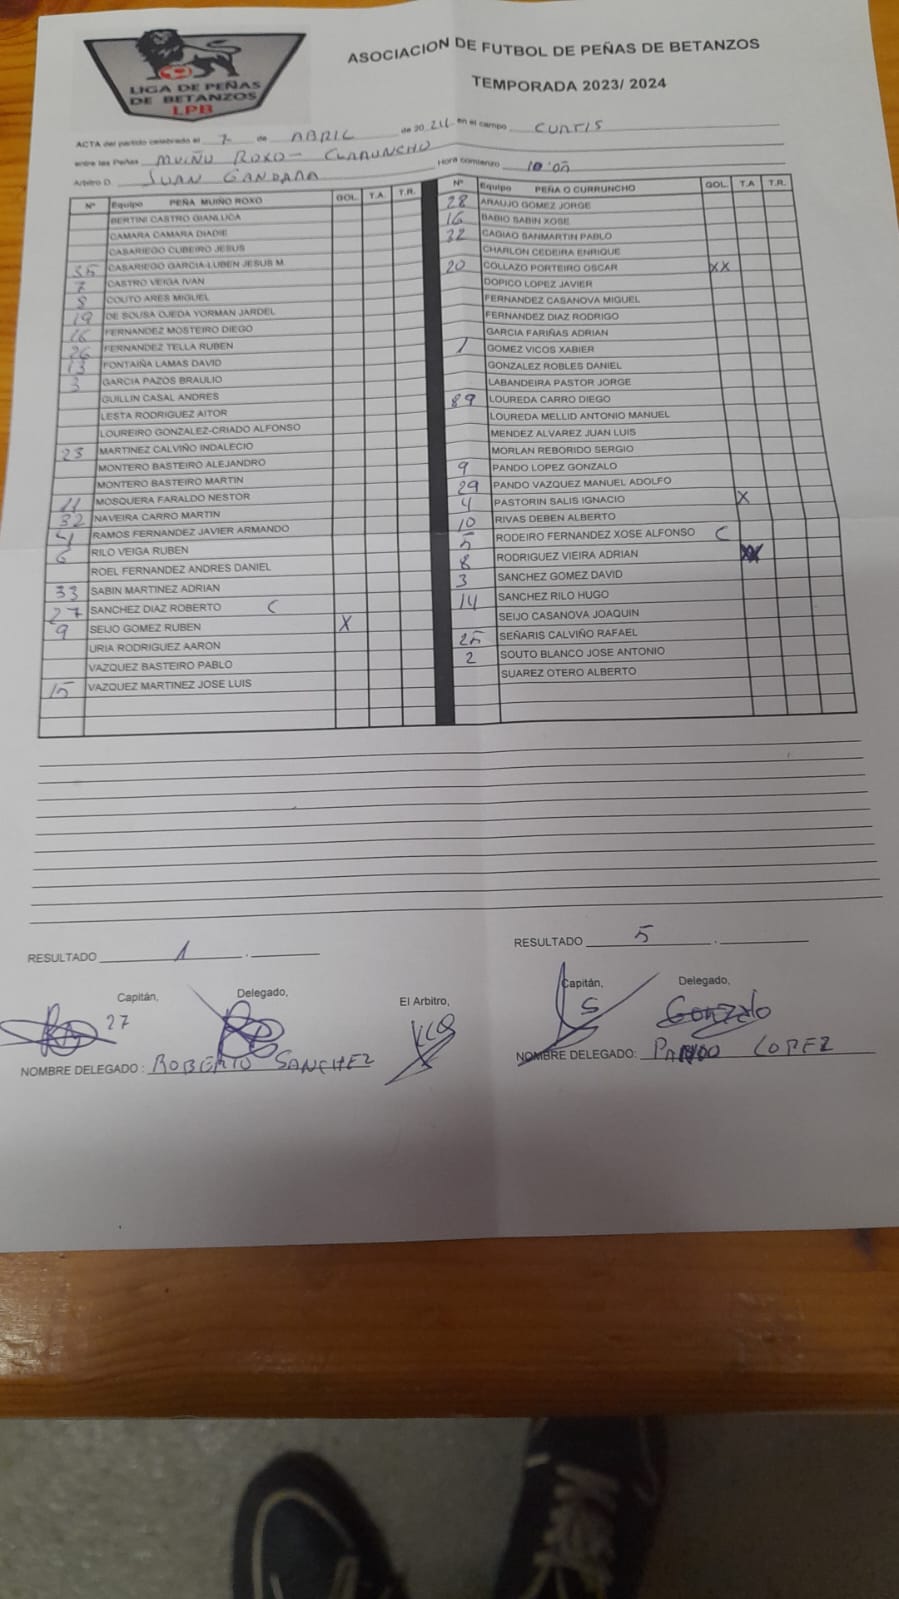 LIGA DE PEÑAS
DE BETANZOS
LPB
ASOCIACION DE FUTBOL DE PEÑAS DE BETANZOS
TEMPORADA 2023/ 2024
ACTA del partido celebrado el 7 de ABRIL de 20 24 en el campo CURTIS
entre las Peñas MUIÑO ROXO - CURRUNCHO Hora comienzo 10:00
Arbitro D. JUAN GANDARA
Nº Equipo PEÑA MUIÑO ROXO GOL. T.A. T.R.
BERTINI CASTRO GIANLUCA
CAMARA CAMARA DIADIE
CASARIEGO CUBEIRO JESUS
35 CASARIEGO GARCIA-LUBEN JESUS M
7 CASTRO VEIGA IVAN
8 COUTO ARES MIGUEL
19 DE SOUSA OJEDA YORMAN JARDEL
16 FERNANDEZ MOSTEIRO DIEGO
26 FERNANDEZ TELLA RUBEN
13 FONTAIÑA LAMAS DAVID
3 GARCIA PAZOS BRAULIO
GUILLIN CASAL ANDRES
LESTA RODRIGUEZ AITOR
LOUREIRO GONZALEZ-CRIADO ALFONSO
23 MARTINEZ CALVIÑO INDALECIO
MONTERO BASTEIRO ALEJANDRO
MONTERO BASTEIRO MARTIN
11 MOSQUERA FARALDO NESTOR
32 NAVEIRA CARRO MARTIN
4 RAMOS FERNANDEZ JAVIER ARMANDO
6 RILO VEIGA RUBEN
ROEL FERNANDEZ ANDRES DANIEL
33 SABIN MARTINEZ ADRIAN
27 SANCHEZ DIAZ ROBERTO C
9 SEIJO GOMEZ RUBEN X
URIA RODRIGUEZ AARON
VAZQUEZ BASTEIRO PABLO
15 VAZQUEZ MARTINEZ JOSE LUIS
Nº Equipo PEÑA O CURRUNCHO GOL. T.A T.R.
28 ARAUJO GOMEZ JORGE
16 BABIO SABIN XOSE
22 CAGIAO SANMARTIN PABLO
CHARLON CEDEIRA ENRIQUE
20 COLLAZO PORTEIRO OSCAR XX
DOPICO LOPEZ JAVIER
FERNANDEZ CASANOVA MIGUEL
FERNANDEZ DIAZ RODRIGO
GARCIA FARIÑAS ADRIAN
1 GOMEZ VICOS XABIER
GONZALEZ ROBLES DANIEL
LABANDEIRA PASTOR JORGE
89 LOUREDA CARRO DIEGO
LOUREDA MELLID ANTONIO MANUEL
MENDEZ ALVAREZ JUAN LUIS
MORLAN REBORIDO SERGIO
9 PANDO LOPEZ GONZALO
29 PANDO VAZQUEZ MANUEL ADOLFO
4 PASTORIN SALIS IGNACIO X
10 RIVAS DEBEN ALBERTO
5 RODEIRO FERNANDEZ XOSE ALFONSO C
8 RODRIGUEZ VIEIRA ADRIAN
3 SANCHEZ GOMEZ DAVID
14 SANCHEZ RILO HUGO
SEIJO CASANOVA JOAQUIN
25 SEÑARIS CALVIÑO RAFAEL
2 SOUTO BLANCO JOSE ANTONIO
SUAREZ OTERO ALBERTO
RESULTADO 1 .
RESULTADO 5 .
Capitán, Delegado, El Arbitro, Capitán, Delegado,
27 5 Gonzalo
NOMBRE DELEGADO : ROBERTO SANCHEZ
NOMBRE DELEGADO: PANDO LOPEZ